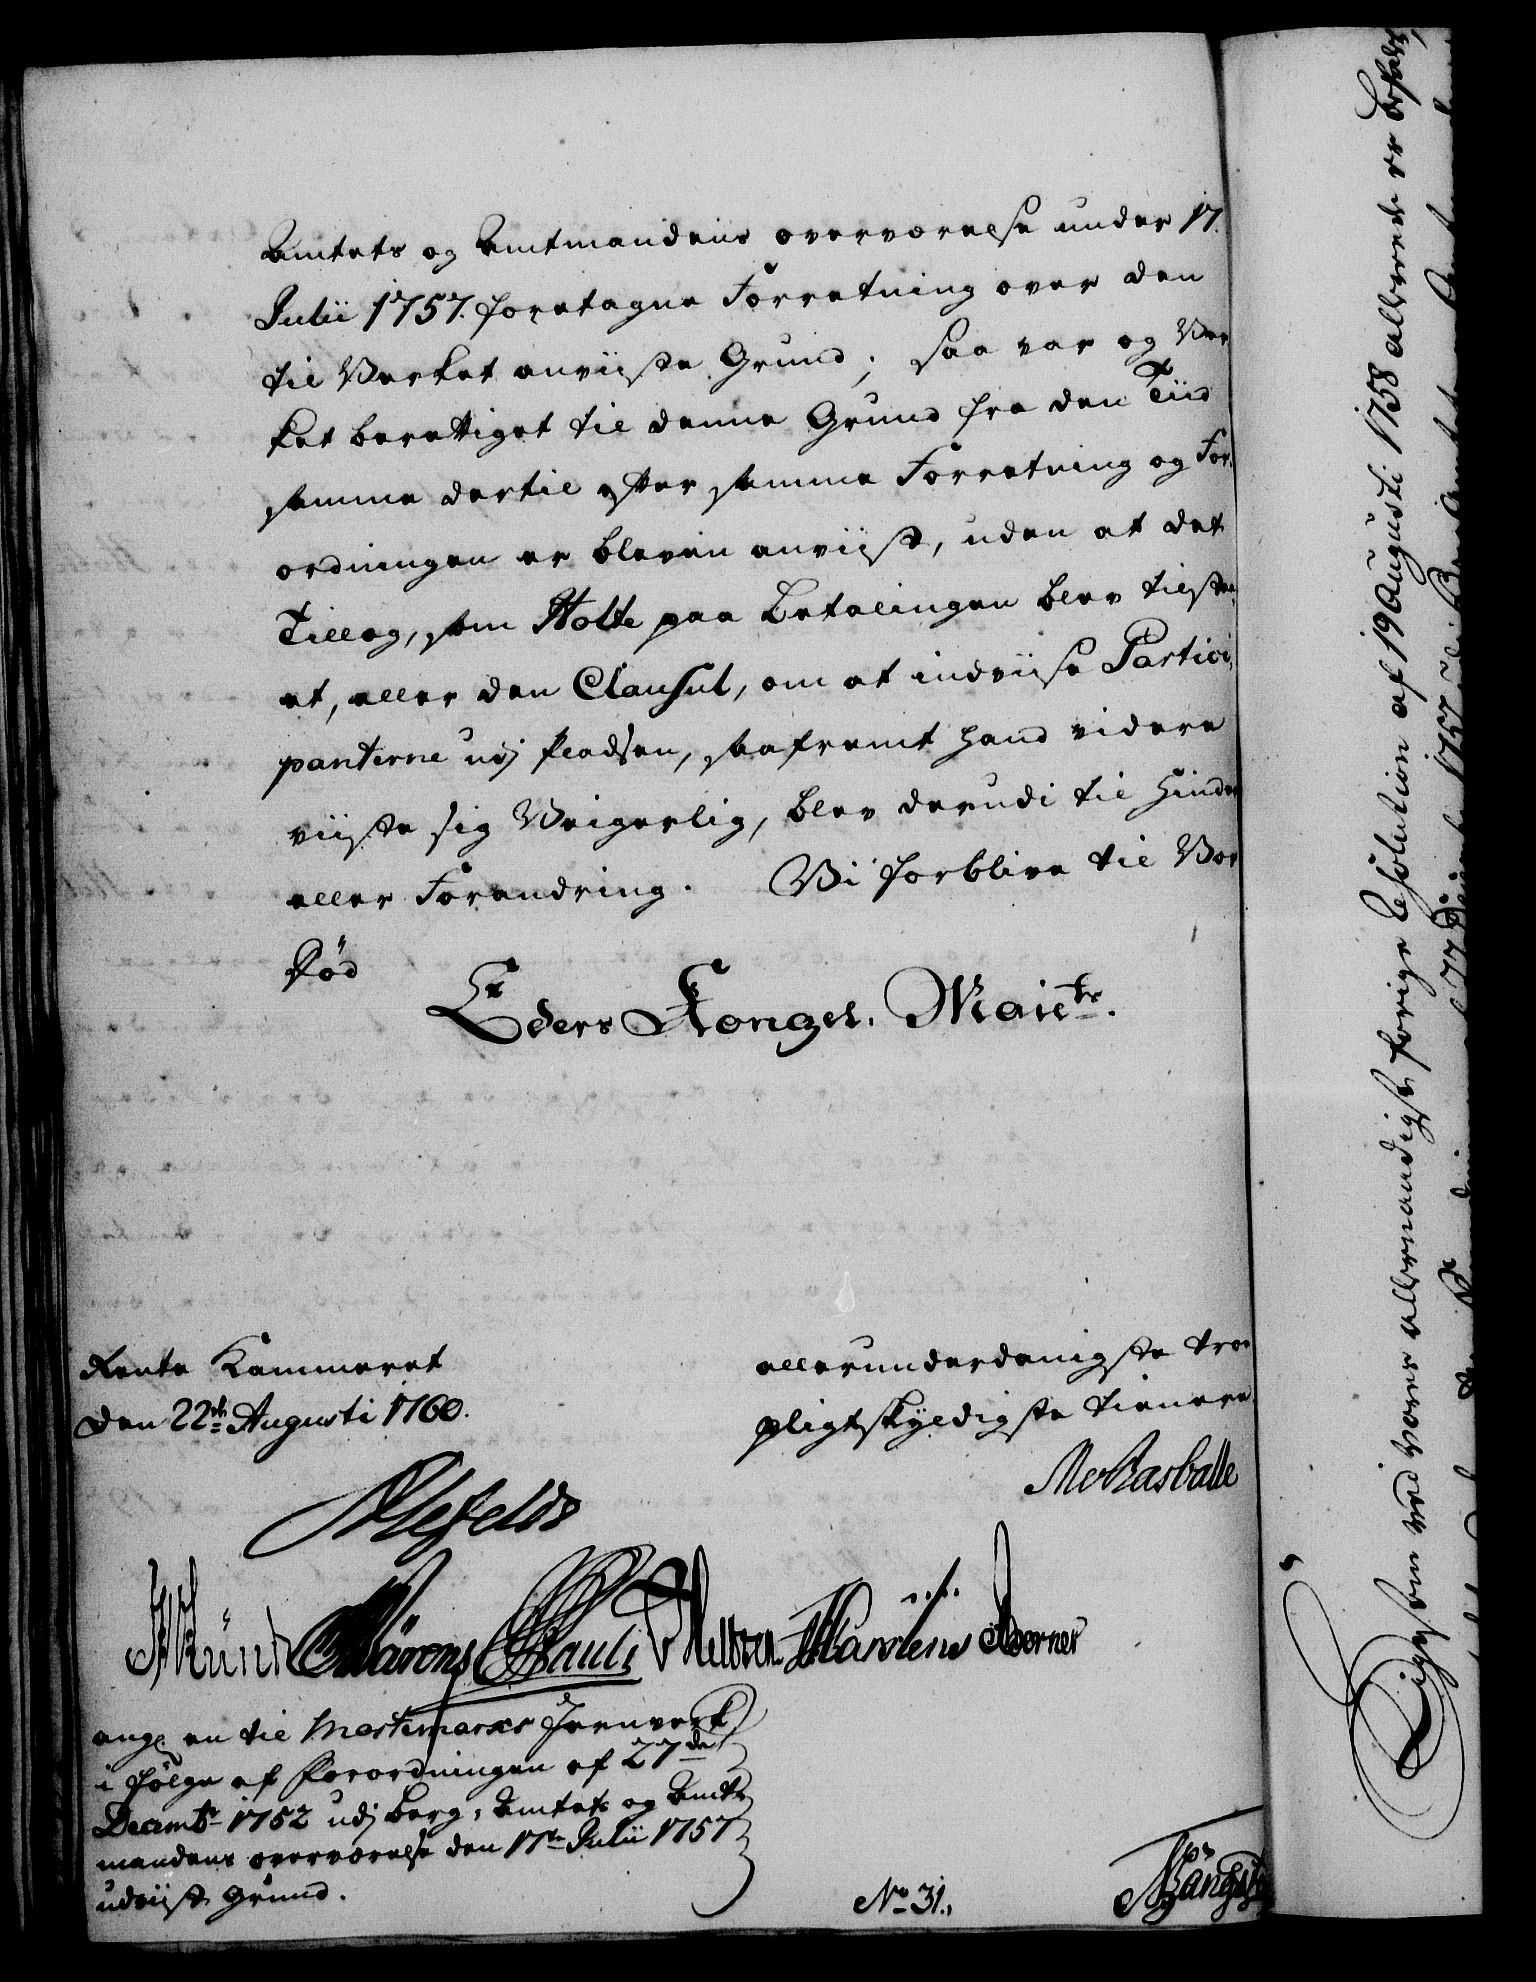 Amtets og Amtmandens overværelse under 17.
Julii 1757. foretagne Forretning over den
til Verket anviiste Grund; saa var og Ver
ket berettiget til denne Grund fra den Tiid
samme dertil efter samme Forretning og For,
ordningen er bleven anviist, uden at det
Tillæg, som Holte paa Betalingen blev tilstaa,
et, eller den Clausul, om at indviise Partici,
panterne udj Pladsen, saafremt hand videre
viiste sig Veigerlig, blev derudi til Hinder
eller Forandring. Vi forblive til Vor
Død
Eders Kongel. Maiets.
Rente Kammeret
den 22de Augusti 1760.
allerunderdanigste troe
pligtskyldigste tienere
Ahlefeldt
Bärens Pauli Heltzen Marstens Berner
ang: en til Mostemarks Jernverk
i følge af Forordningen af 27de
Decembr 1752 udj Berg, Amtets og Amt
mandens overværelse den 17de Julii 1757
udviist Grund.
No 31.,
Ligesom ved vores allernaadigst forige Resolution af 19 Augusti 1758 allerede er befalet,